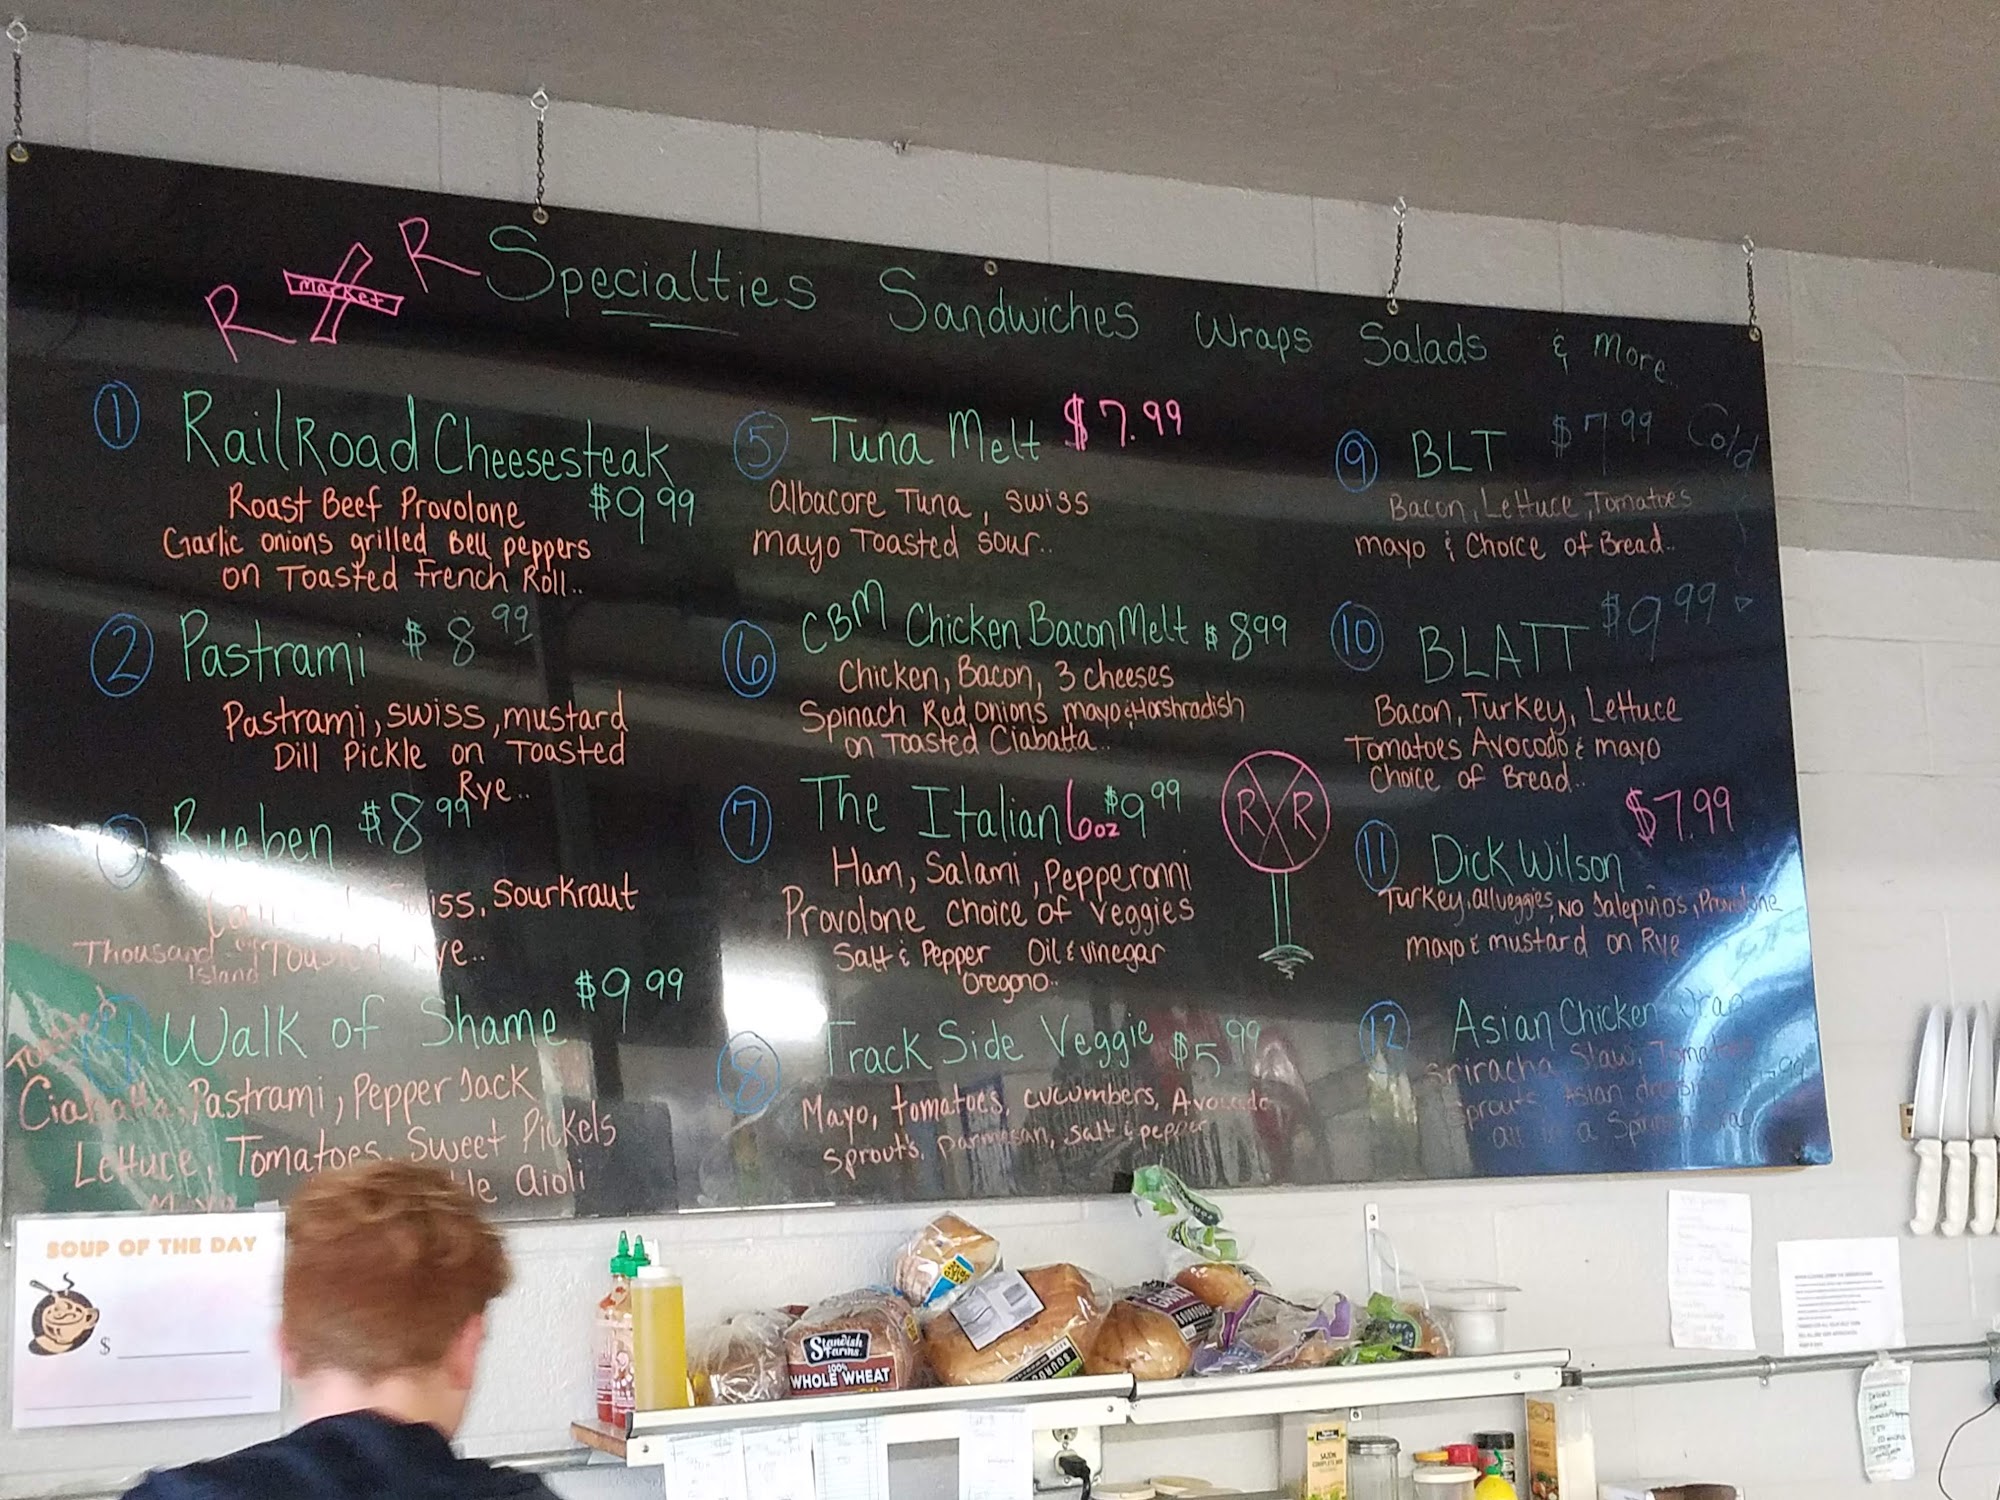 R market R Specialties Sandwiches Wraps Salads & more..
1 RailRoad Cheesesteak
$9.99
Roast Beef Provolone
Garlic onions grilled Bell peppers
on Toasted French Roll..
2 Pastrami $8.99
Pastrami, swiss, mustard
Dill Pickle on Toasted
Rye..
3 Rueben $8.99
Swiss, Sourkraut
Thousand Island Toasted Rye..
4 Walk of Shame $9.99
Toasted
Ciabatta, Pastrami, Pepper Jack
Lettuce, Tomatoes, Sweet Pickels
Mayo aioli
5 Tuna Melt $7.99
albacore Tuna, swiss
mayo Toasted sour..
6 CBM Chicken Bacon Melt $8.99
Chicken, Bacon, 3 cheeses
Spinach Red onions mayo & Horshradish
on Toasted Ciabatta..
7 The Italian 6oz $9.99
Ham, Salami, Pepperonni
Provolone choice of veggies
Salt & Pepper Oil & vinegar
Oregono..
R X R
8 Track Side Veggie $5.99
Mayo, tomatoes, cucumbers, Avocado
sprouts, parmesan, salt & pepper
9 BLT $7.99 Cold
Bacon, Lettuce, Tomatoes
mayo & Choice of Bread..
10 BLATT $9.99
Bacon, Turkey, Lettuce
Tomatoes Avocado & mayo
Choice of Bread..
11 Dick Wilson $7.99
Turkey, all veggies, NO Jalepiños, Provolone
mayo & mustard on Rye
12 Asian Chicken Wrap
Sriracha Slaw, Tomatoes
Sprouts Asian
all in a
SOUP OF THE DAY
$
Standish Farms
100%
WHOLE WHEAT